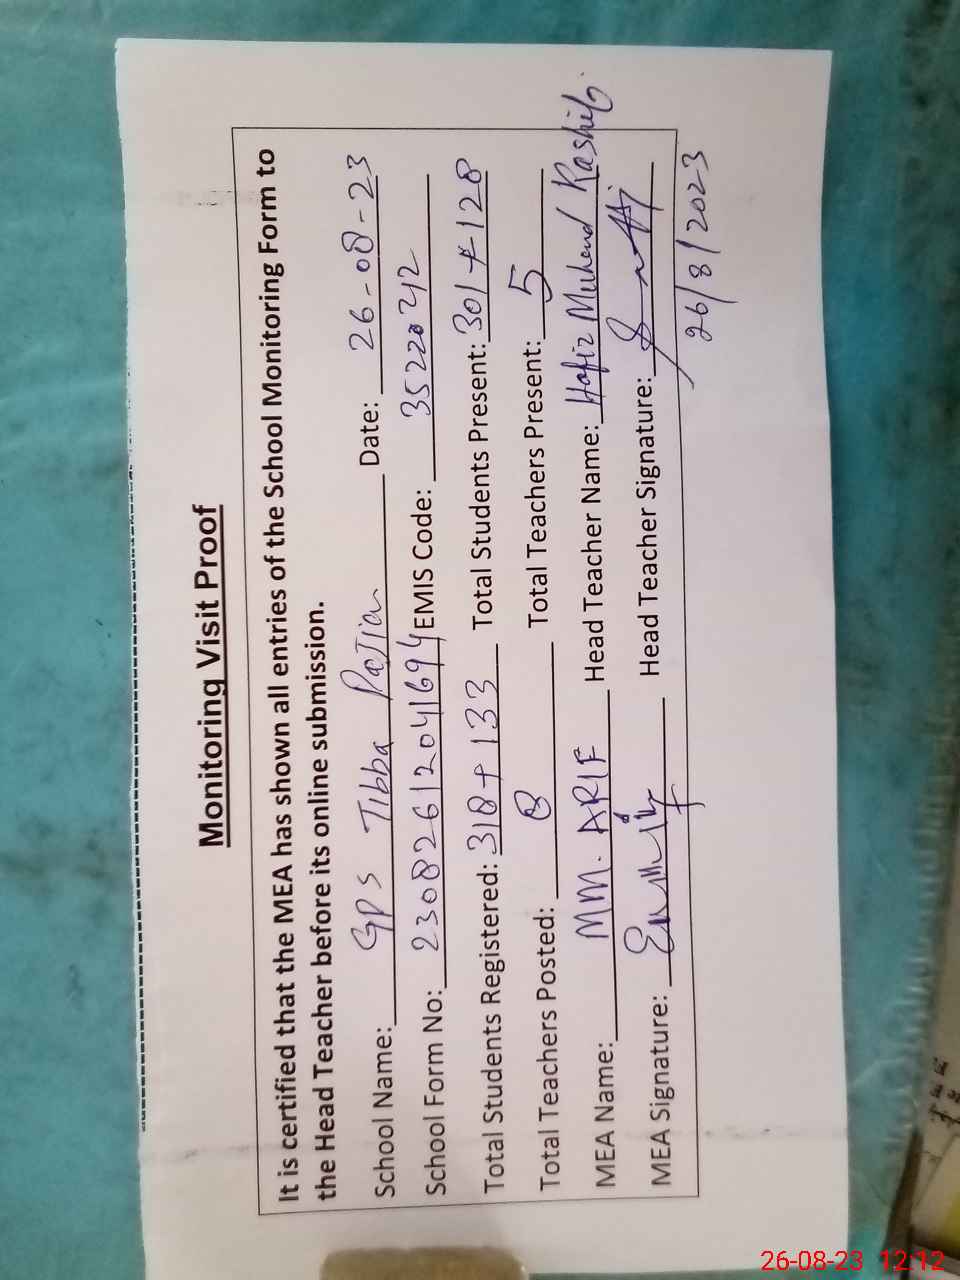 Monitoring Visit Proof
It is certified that the MEA has shown all entries of the School Monitoring Form to
the Head Teacher before its online submission.
School Name: GPS Tibba Date: 26-08-23
School Form No: 23082612041694 EMIS Code: 35220242
Total Students Registered: 318+133 Total Students Present: 301+128
Total Teachers Posted: 8 Total Teachers Present: 5
MEA Name: MM. ARIF Head Teacher Name: Hafiz Muhamd Rashid
MEA Signature: Head Teacher Signature:
26/8/2023
26-08-23 12:12